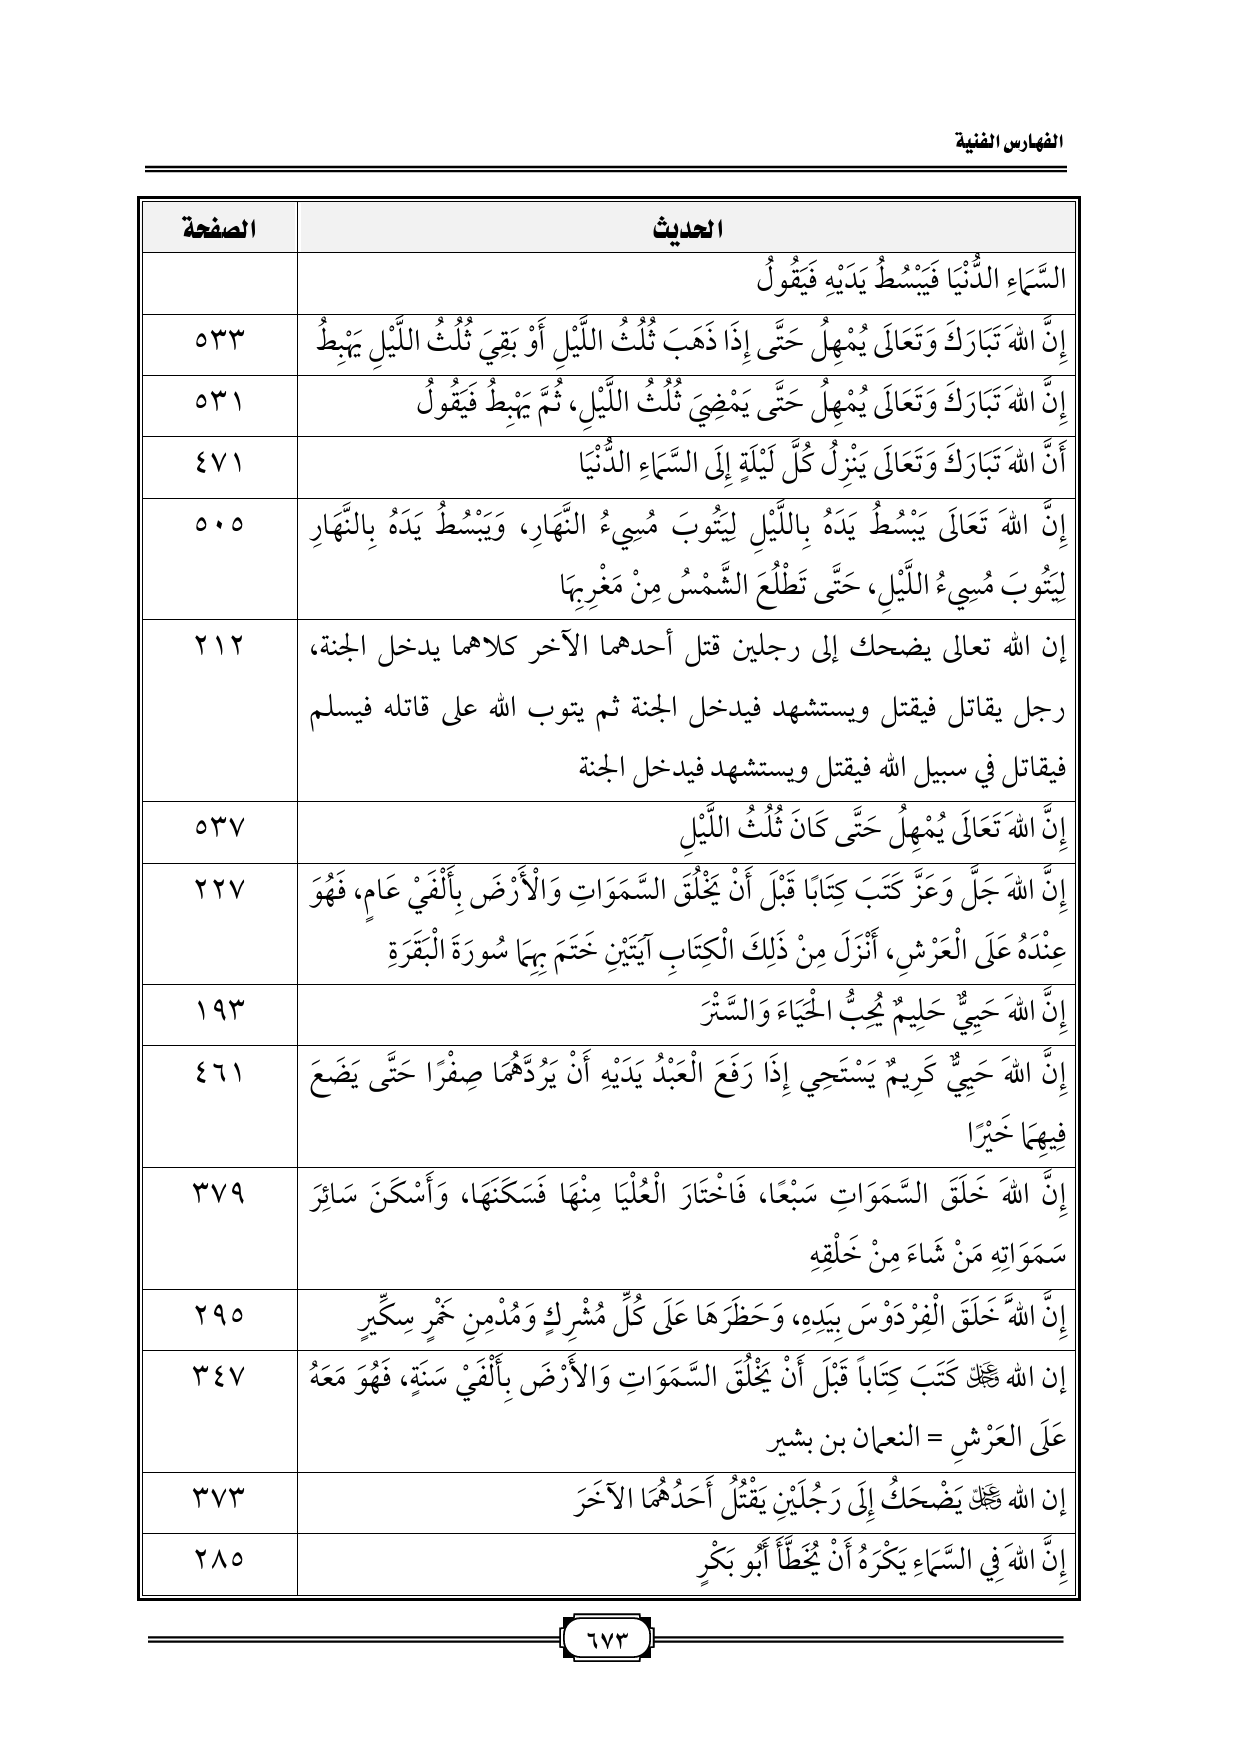 الفهارس الفنية
الحديث الصفحة
السَّمَاءِ الدُّنْيَا فَيَبْسُطُ يَدَيْهِ فَيَقُولُ
إِنَّ اللهَ تَبَارَكَ وَتَعَالَى يُمْهِلُ حَتَّى إِذَا ذَهَبَ ثُلُثُ اللَّيْلِ أَوْ بَقِيَ ثُلُثُ اللَّيْلِ يَهْبِطُ ٥٣٣
إِنَّ اللهَ تَبَارَكَ وَتَعَالَى يُمْهِلُ حَتَّى يَمْضِيَ ثُلُثُ اللَّيْلِ، ثُمَّ يَهْبِطُ فَيَقُولُ ٥٣١
أَنَّ اللهَ تَبَارَكَ وَتَعَالَى يَنْزِلُ كُلَّ لَيْلَةٍ إِلَى السَّمَاءِ الدُّنْيَا ٤٧١
إِنَّ اللهَ تَعَالَى يَبْسُطُ يَدَهُ بِاللَّيْلِ لِيَتُوبَ مُسِيءُ النَّهَارِ، وَيَبْسُطُ يَدَهُ بِالنَّهَارِ ٥٠٥
لِيَتُوبَ مُسِيءُ اللَّيْلِ، حَتَّى تَطْلُعَ الشَّمْسُ مِنْ مَغْرِبِهَا
إن الله تعالى يضحك إلى رجلين قتل أحدهما الآخر كلاهما يدخل الجنة، ٢١٢
رجل يقاتل فيقتل ويستشهد فيدخل الجنة ثم يتوب الله على قاتله فيسلم
فيقاتل في سبيل الله فيقتل ويستشهد فيدخل الجنة
إِنَّ اللهَ تَعَالَى يُمْهِلُ حَتَّى كَانَ ثُلُثُ اللَّيْلِ ٥٣٧
إِنَّ اللهَ جَلَّ وَعَزَّ كَتَبَ كِتَابًا قَبْلَ أَنْ يَخْلُقَ السَّمَوَاتِ وَالْأَرْضَ بِأَلْفَيْ عَامٍ، فَهُوَ ٢٢٧
عِنْدَهُ عَلَى الْعَرْشِ، أَنْزَلَ مِنْ ذَلِكَ الْكِتَابِ آيَتَيْنِ خَتَمَ بِهِمَا سُورَةَ الْبَقَرَةِ
إِنَّ اللهَ حَيِيٌّ حَلِيمٌ يُحِبُّ الْحَيَاءَ وَالسَّتْرَ ١٩٣
إِنَّ اللهَ حَيِيٌّ كَرِيمٌ يَسْتَحِي إِذَا رَفَعَ الْعَبْدُ يَدَيْهِ أَنْ يَرُدَّهُمَا صِفْرًا حَتَّى يَضَعَ ٤٦١
فِيهِمَا خَيْرًا
إِنَّ اللهَ خَلَقَ السَّمَوَاتِ سَبْعًا، فَاخْتَارَ الْعُلْيَا مِنْهَا فَسَكَنَهَا، وَأَسْكَنَ سَائِرَ ٣٧٩
سَمَوَاتِهِ مَنْ شَاءَ مِنْ خَلْقِهِ
إِنَّ اللهَ خَلَقَ الْفِرْدَوْسَ بِيَدِهِ، وَحَظَرَهَا عَلَى كُلِّ مُشْرِكٍ وَمُدْمِنِ خَمْرٍ سِكِّيرٍ ٢٩٥
إن الله ﷿ كَتَبَ كِتَاباً قَبْلَ أَنْ يَخْلُقَ السَّمَوَاتِ وَالأَرْضَ بِأَلْفَيْ سَنَةٍ، فَهُوَ مَعَهُ ٣٤٧
عَلَى العَرْشِ = النعمان بن بشير
إن الله ﷿ يَضْحَكُ إِلَى رَجُلَيْنِ يَقْتُلُ أَحَدُهُمَا الآخَرَ ٣٧٣
إِنَّ اللهَ فِي السَّمَاءِ يَكْرَهُ أَنْ يُخَطَّأَ أَبُو بَكْرٍ ٢٨٥
٦٧٣